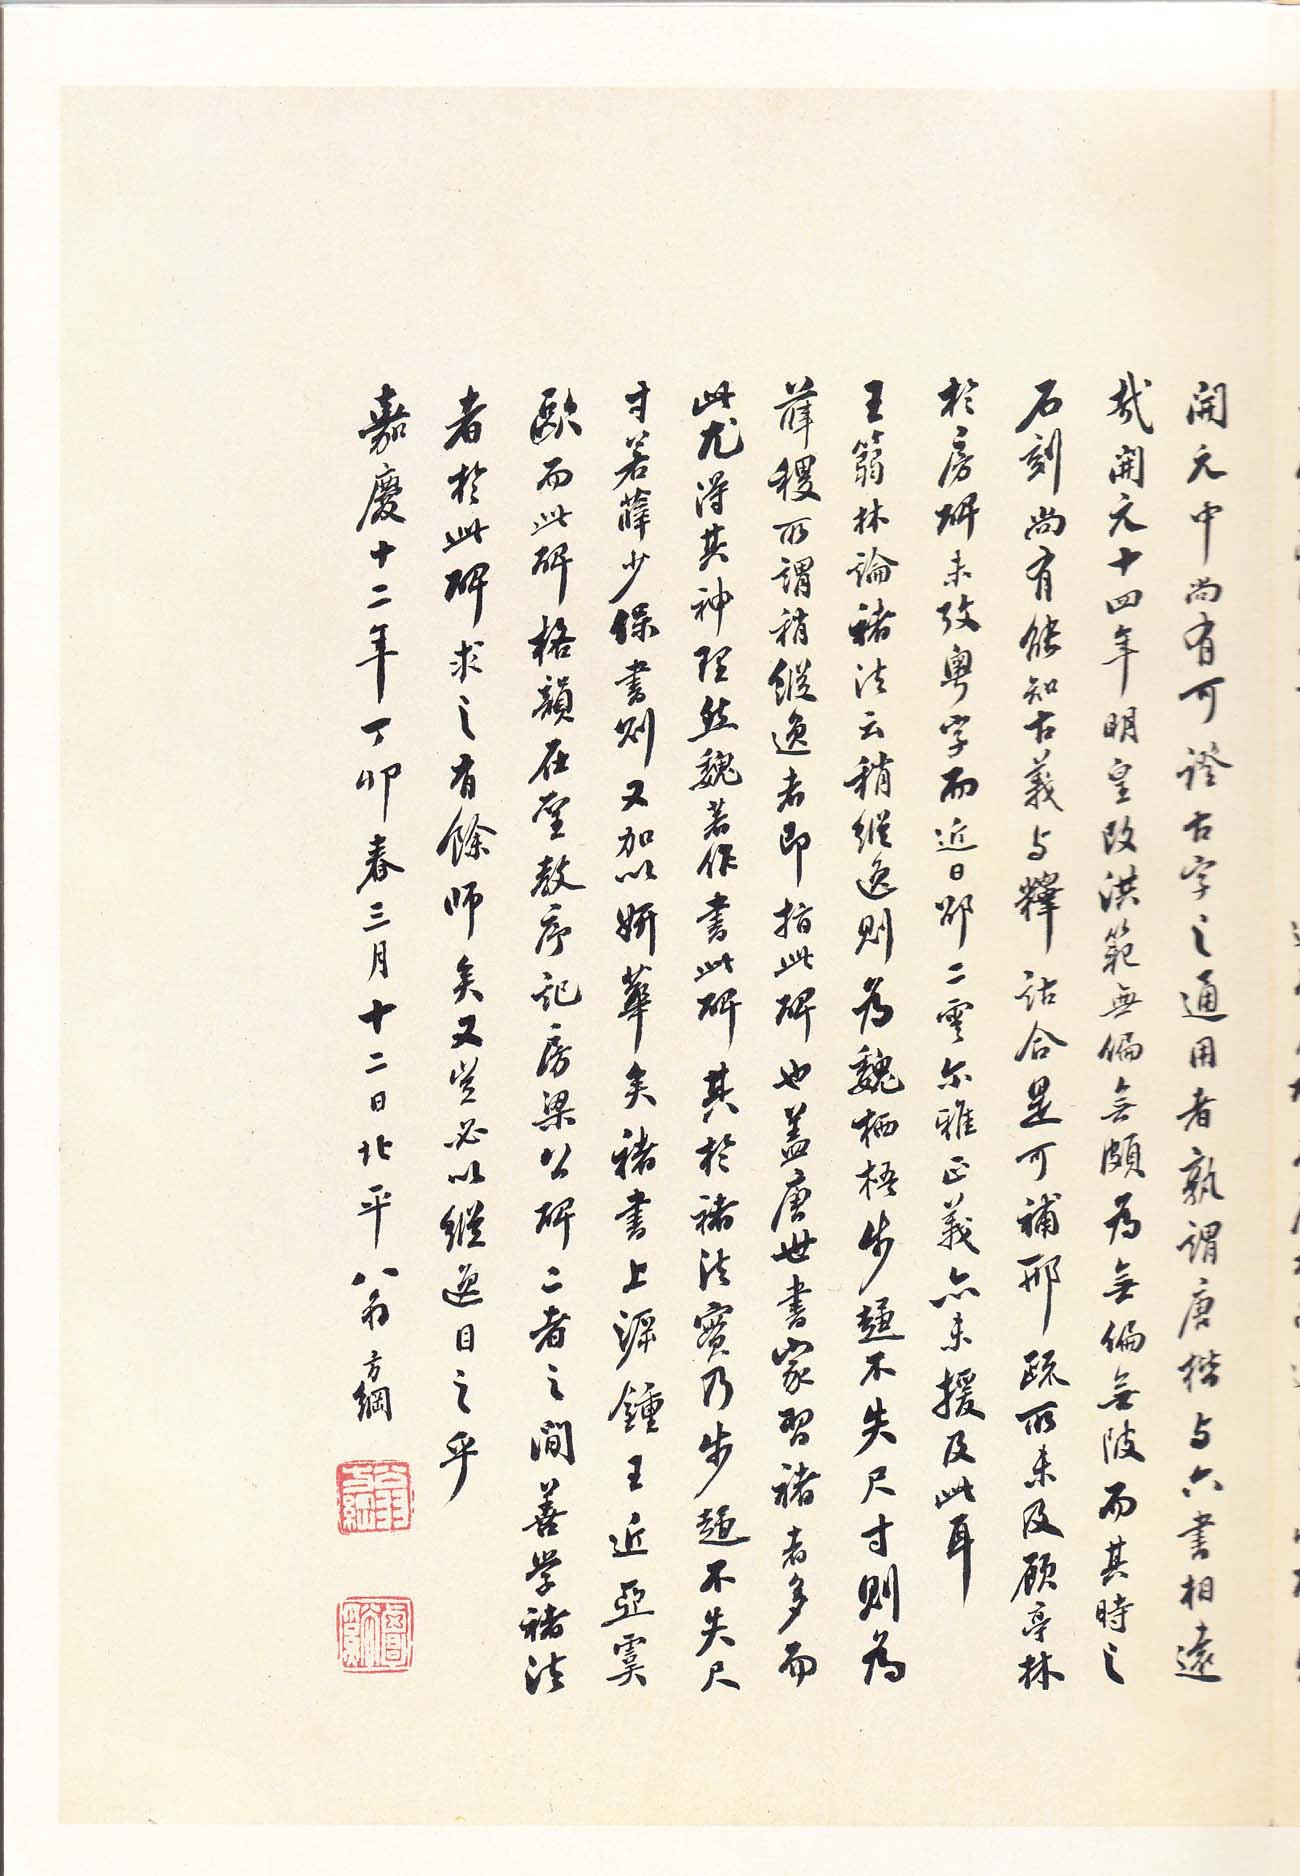 開元中尚有可證古字之通用者孰謂唐楷与六書相遠
哉開元十四年明皇改洪範無偏無頗為無偏無陂而其時之
石刻尚有能知古義与釋詁合是可補邢疏所未及顧亭林
於房碑未攷粵字而近日邵二雲尔雅正義亦未援及此耳
王篛林論褚法云稍縱逸則為魏栖梧步趍不失尺寸則為
薛稷所謂稍縱逸者即指此碑也蓋唐世書家習褚者多而
此尤得其神理然魏著作書此碑其於褚法實乃步趍不失尺
寸若薛少保書則又加以妍華矣褚書上源鍾王近亞虞
歐而此碑格韻在聖教序記房梁公碑二者之間善學褚法
者於此碑求之有餘師矣又豈必以縱逸目之乎
嘉慶十二年丁卯春三月十二日北平翁方綱
翁方綱
覃谿